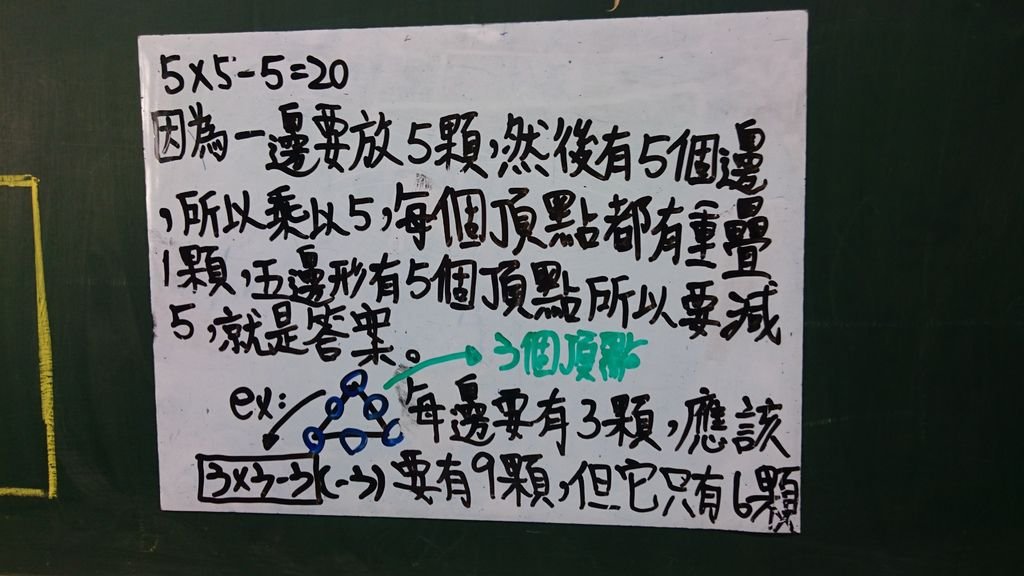 5×5-5=20
因為一邊要放5顆,然後有5個邊
,所以乘以5,每個頂點都有重疊
1顆,五邊形有5個頂點所以要減
5,就是答案。
3個頂點
ex:
每邊要有3顆,應該
3×3-3(-3)要有9顆,但它只有6顆